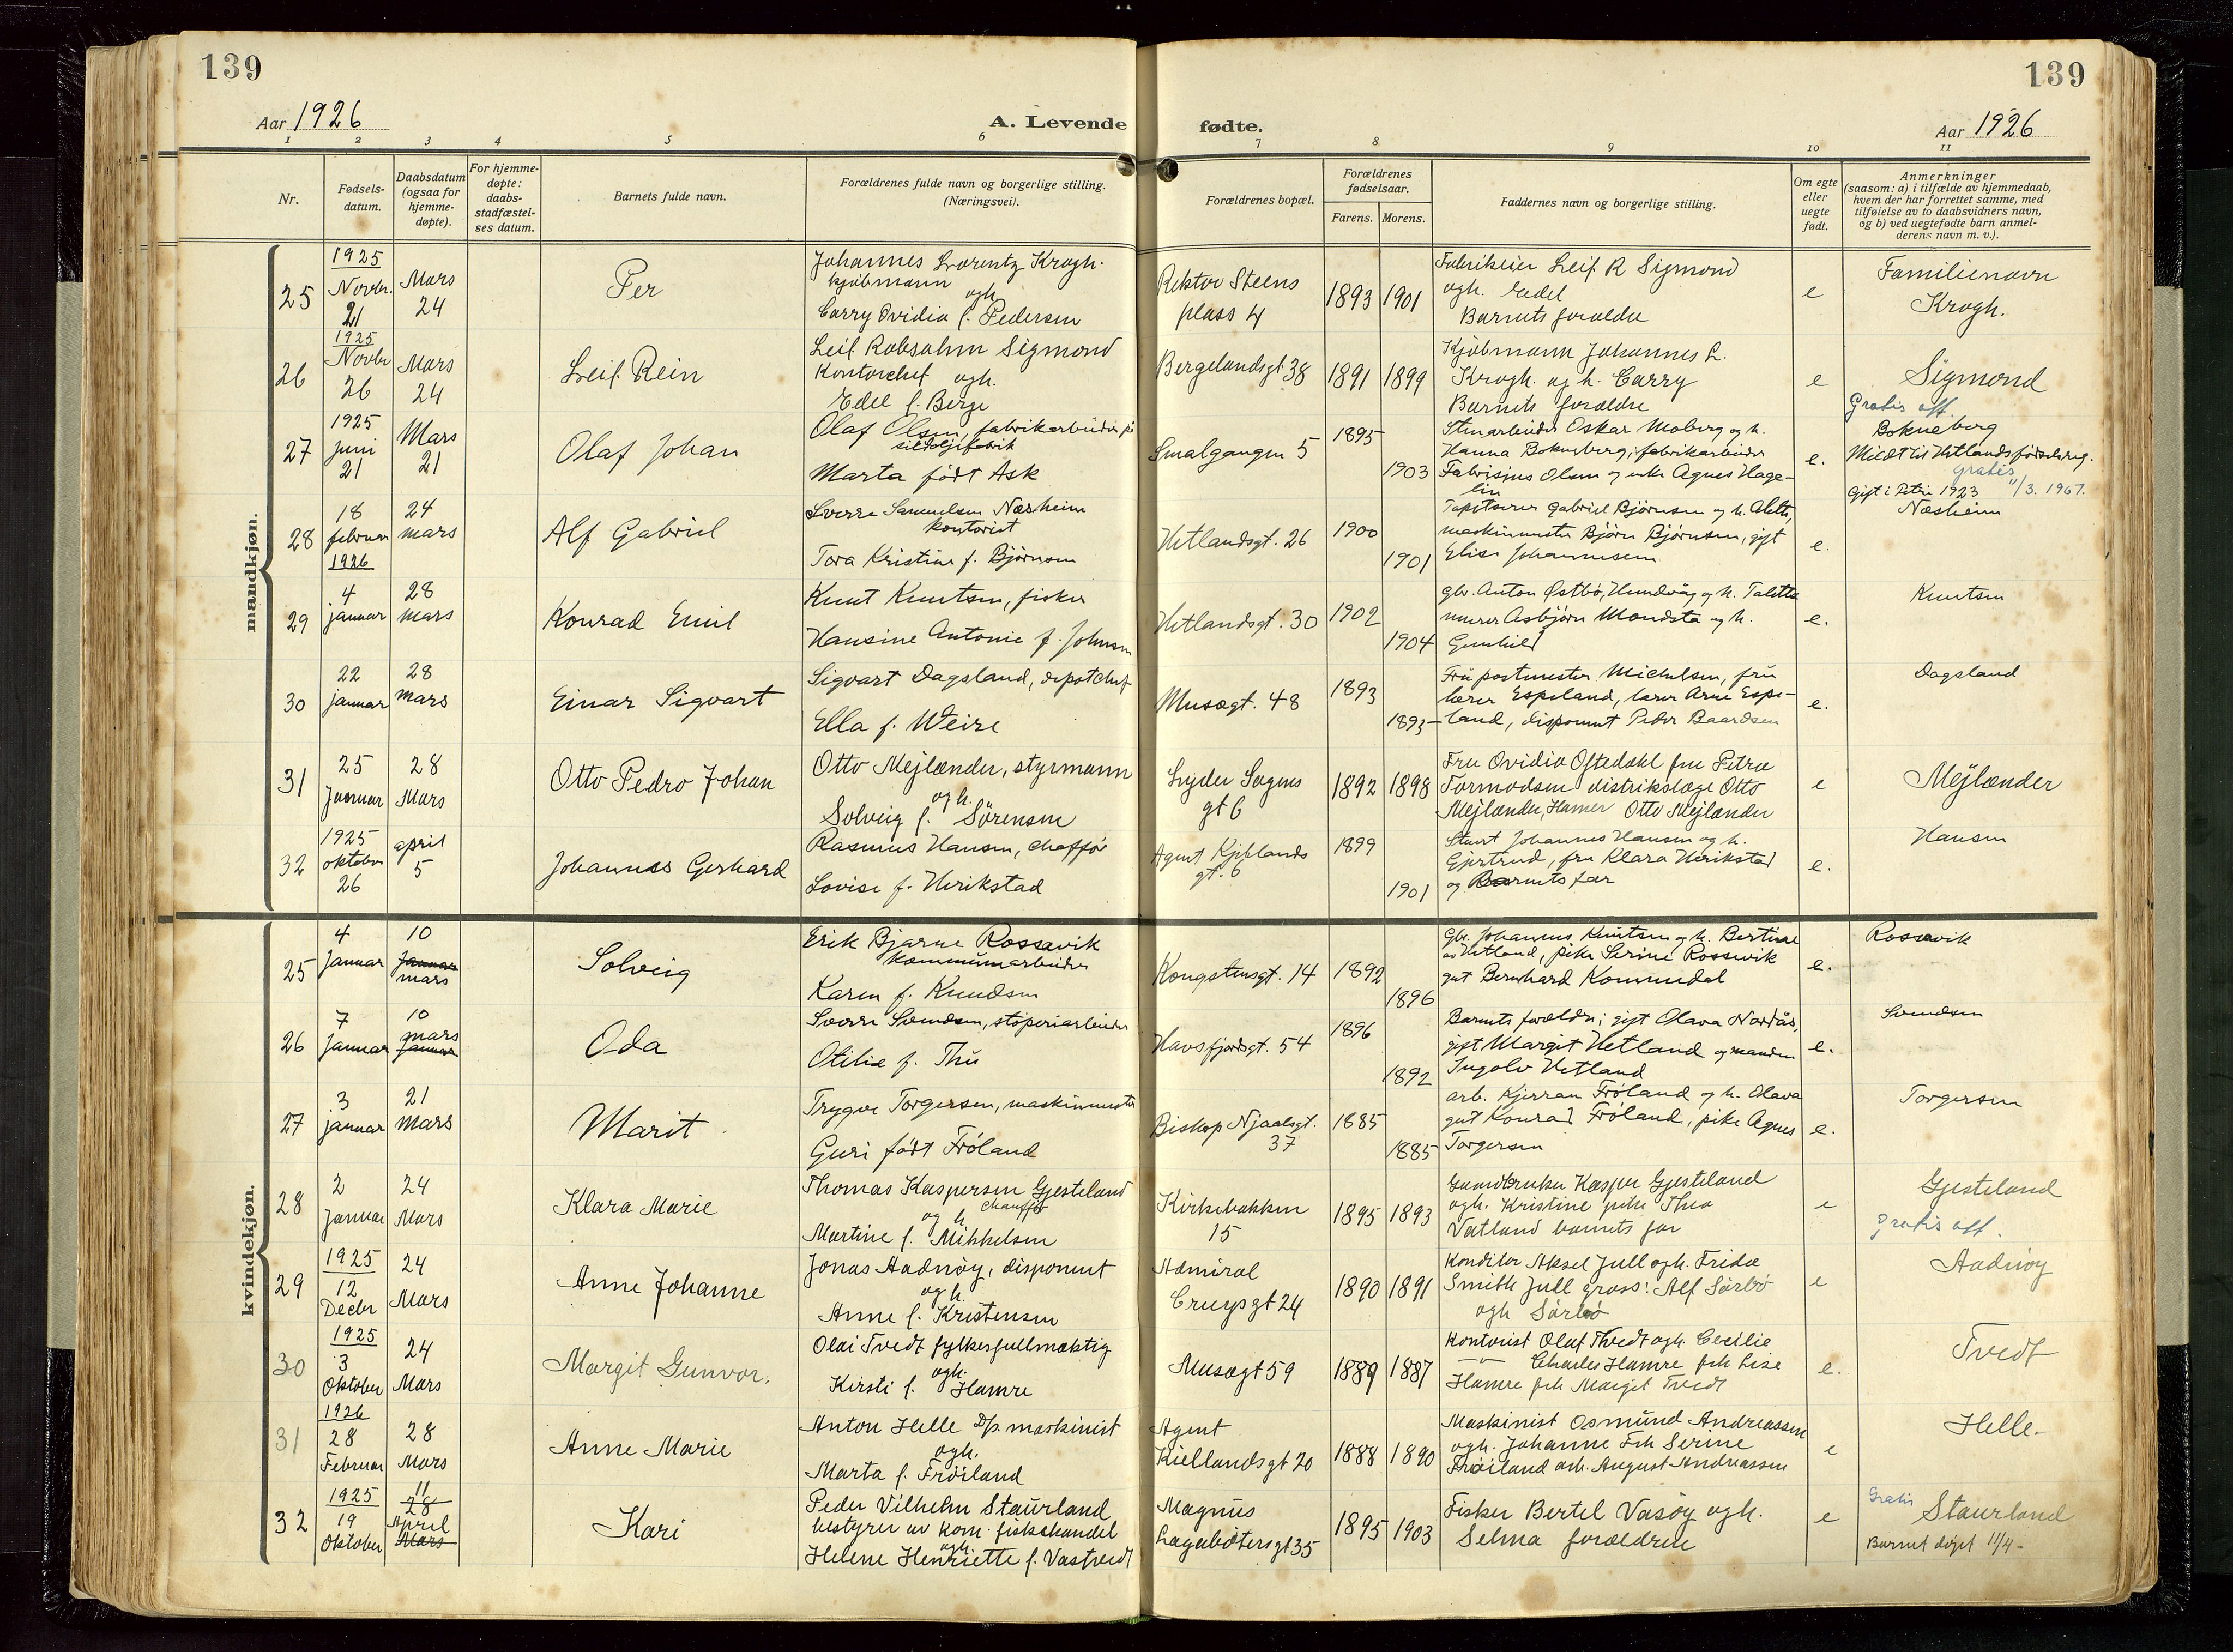 139
139
Aar 1926
A. Levende
fødte.
Aar 1926
1 2 3 4 5 6 7 8 9 10 11
Nr.
Fødsels-
datum.
Daabsdatum
(ogsaa for
hjemme-
døpte).
For hjemme-
døpte:
daabs-
stadfæstel-
ses datum.
Barnets fulde navn.
Forældrenes fulde navn og borgerlige stilling.
(Næringsvei).
Forældrenes bopæl.
Forældrenes
fødselsaar.
Farens. Morens.
Faddernes navn og borgerlige stilling.
Om egte
eller
uegte
født.
Anmerkninger
(saasom: a) i tilfælde av hjemmedaab,
hvem der har forrettet samme, med
tilføielse av to daabsvidners navn,
og b) ved uegtefødte barn anmel-
derens navn m. v.).
mandkjøn.
25
1925
Novbr.
21
Mars
24
Per
Johannes Lorentz Krogh.
kjøbmann
ogh
Carry Ovidia f. Pedersen
Rektor Steens
plass 4
1893 1901
Fabrikeier Leif R Sigmond
ogh. Edel
Barnets foræeldre
e
Familienavn
Krogh.
26
1925
Novbr
26
Mars
24
Leif Rein
Leif Robsahm Sigmond
Kontorchef ogh.
Edel f. Berge
Bergelandsgt 38
1891 1899
Kjøbmann Johannes L.
Krogh. og h. Carry
Barnets foræeldre
e
Sigmond
Gratis att.
27
1925
Juni
21
Mars
21
Olaf Johan
Olaf Olsen, fabrikarbeider på
sildoljefabrik
Marta født Ask
Smalgangen 5
1895
1903
Stenarbeider Oskar Moberg og h.
Hanna Bokneberg, fabrikarbeider
Fabrisius Olsen og enke Agnes Hage-
lin
e.
Bokneberg
Meldt til Hetlands fødselsreg.
Gratis
gift i Petri 1923 11/3. 1967.
28
18
februar
1926
24
mars
Alf Gabriel
Sverre Samuelsen Næsheim
kontorist
Tora Kristine f. Bjørnsen
Hetlandsgt. 26
1900
1901
Tapetserer Gabriel Bjørnsen og h. Alette,
maskinmester Bjørn Bjørnsen, gift
Elise Johannesen
e.
Næsheim
29
4
januar
28
mars
Konrad Emil
Knut Knutsen, fisker
Hansine Antonie f. Johnsen
Hetlandsgt. 30
1902
1904
gbr. Anton Østbø, Hundvåg og h. Talette
murer Asbjørn Mondsta og h.
Gunhild
e.
Knutsen
30
22
januar
28
mars
Einar Sigvart
Sigvart Dagsland, depotchef
Ella f. Weire
Musægt. 48
1893
1893
Fru postmester Michelsen, fru
lærer Espeland, lærer Arne Espe-
land, disponent Peder Baardsen
e.
Dagsland
31
25
Januar
28
Mars
Otto Pedro Johan
Otto Mejlænder, styrmann
ogh.
Solveig f. Sørensen
Lyder Sagens
gt 6
1892 1898
Fru Ovidia Oftedahl fru Petra
Tormodsen distrikslæge Otto
Mejlænder, Hamer Otto Mejlænder
e
Mejlænder
32
1925
oktober
26
april
5
Johannes Gerhard
Rasmus Hansen, chaffør
Lovise f. Herikstad
Agent Kjellands
gt. 6
1899
1901
Stuert Johannes Hansen og h.
Gjertrud, fru Klara Herikstad
og Barnets far
e.
Hansen
kvindekjøn.
25
4
Januar
10
Januar
mars
Solveig
Erik Bjarne Rossavik
kommunearbeider
Karen f. Knudsen
Kongstensgt. 14
1892
1896
Gbr. Johannes Knutsen og h. Bertine
av Hetland, pike Serine Rossevik
gut Bernhard Kommedal
e.
Rossavik
26
7
Januar
10
mars
Januar
Oda
Sverre Svendsen, støperiarbeider
Otilie f. Thu
Havsfjordsgt. 54
1896
1892
Barnets forældre; gift Olava Nordås,
gift Margit Hetland og manden
Ingolv Hetland
e.
Svendsen
27
3
januar
21
mars
Marit
Trygve Torgersen, maskinmester
Guri født Frøland
Biskop Njaalsgt.
37
1885
1885
arb. Kjerran Frøland og h. Olava
gut Konrad Frøland, pike Agnes
Torgersen
e.
Torgersen
28
2
Januar
24
Mars
Klara Marie
Thomas Kaspersen Gjesteland
chauffør
og h
Martine f. Mikkelsen
Kirkebakken
15
1895 1893
Gaardbruker Kasper Gjesteland
ogh. Kristine pike Thea
Vatland barnets far
e
Gjesteland
Gratis att.
29
1925
12
Decbr
24
Mars
Anne Johanne
Jonas Aadnøy, disponent
ogh.
Anne f. Kristensen
Admiral
Cruysgt 24
1890 1891
Konditor Aksel Jull ogh. Frida
Smith Jull gross: Alf Sørbø
ogh Sørbø
e
Aadnøy
30
1925
3
Oktober
24
Mars
Margit Gunvor.
Olai Tvedt fylkesfullmektig
ogh.
Kirsti f. Hamre
Musægt 59
1889 1887
Kontorist Oluf Tvedt ogh. Cecilie
— " — Charles Hamre frk Lise
Hamre frk Margit Tvedt
e.
Tvedt
31
1926
28
Februar
28
Mars
Anne Marie
Anton Helle D/p. maskinist
ogh.
Marta f. Frøiland
Agent
Kiellandsgt 20
1888 1890
Maskinist Osmund Andreassen
ogh. Johanne Frk Serine
Frøiland arb. August Andreassen
e
Helle.
32
1925
19
Oktober
11
28
April
Mars
Kari
Peder Vilhelm Staurland
bestyrer av kom. fiskehandel
ogh.
Helene Henriette f. Vastvedt
Magnus
Lagabøtersgt 35
1895 1903
Fisker Bertel Vasøy ogh.
Selma forældrene
e
Gratis
Staurland
Barnet døpt 11/4 -